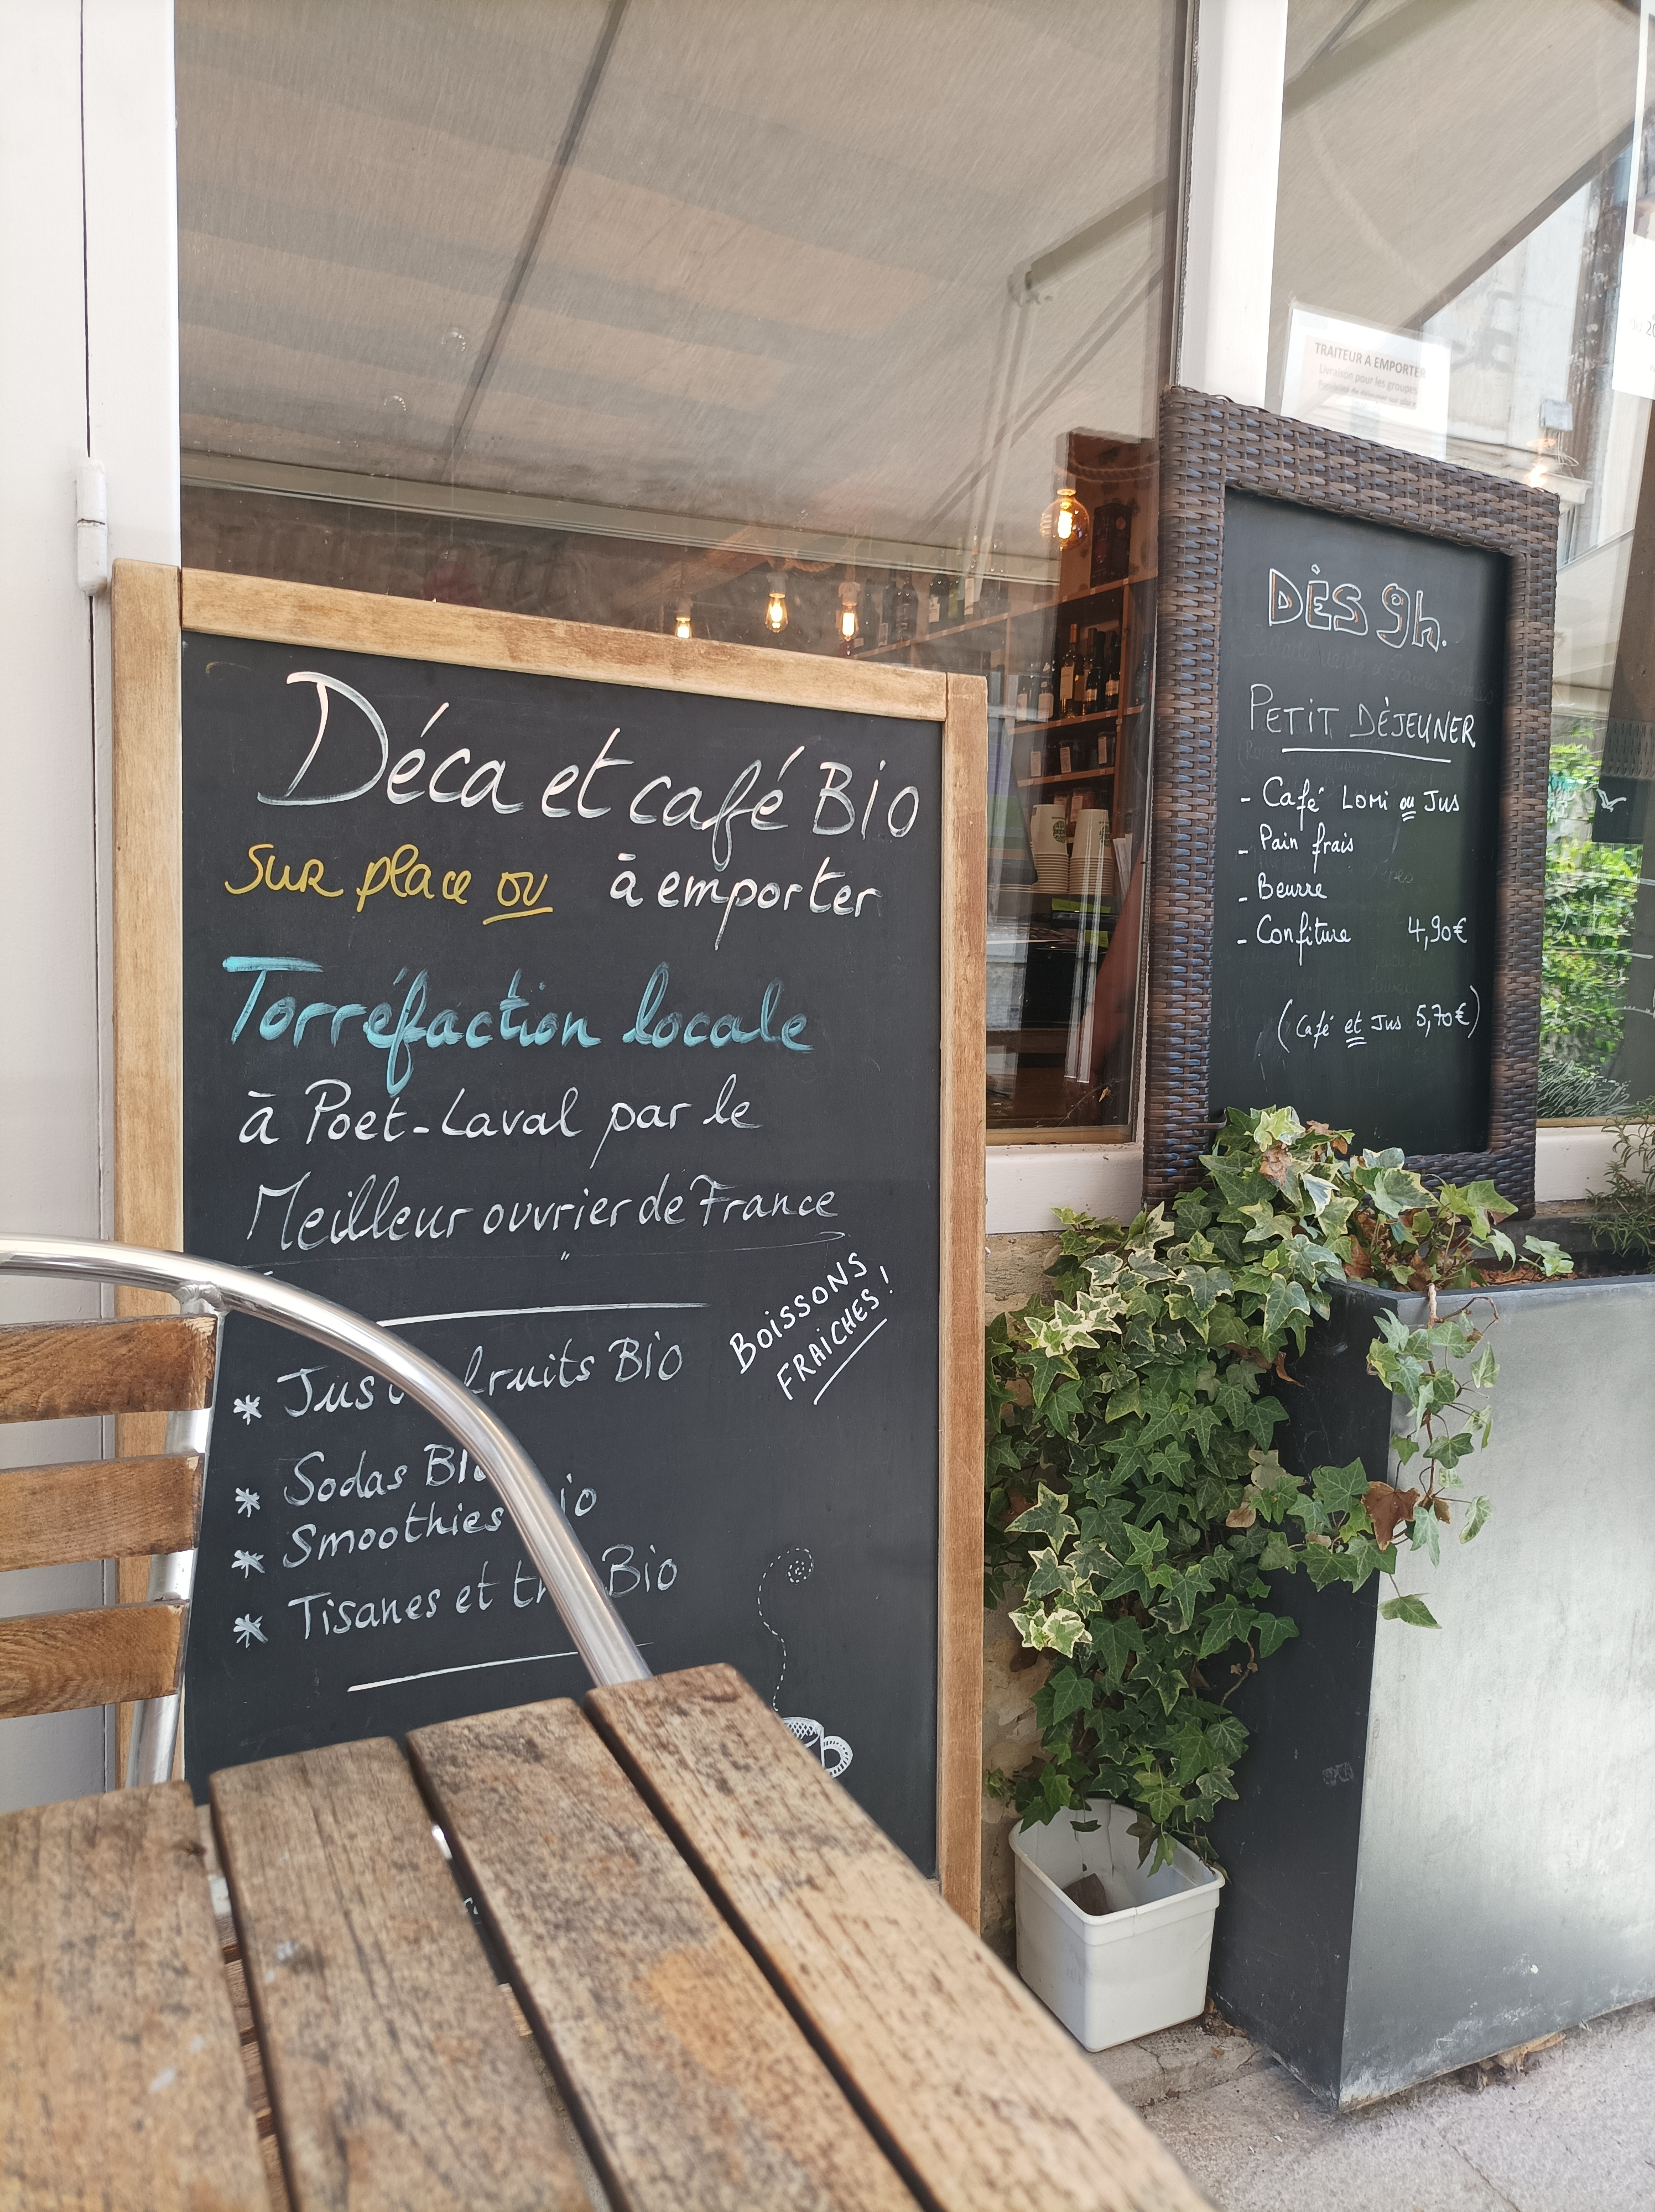 Déca et café BIO
Sur place ou à emporter
Torréfaction locale
à Poët-Laval par le
Meilleur ouvrier de France
BOISSONS
FRAICHES !
* Jus fruits Bio
* Sodas BIo
* Smoothies Bio
* Tisanes et Bio
TRAITEUR A EMPORTER
Livraison pour les groupes
DÈS 9h.
PETIT DÉJEUNER
- Café Lomi ou Jus
- Pain frais
- Beurre
- Confiture 4,90€
(Café et Jus 5,70€)